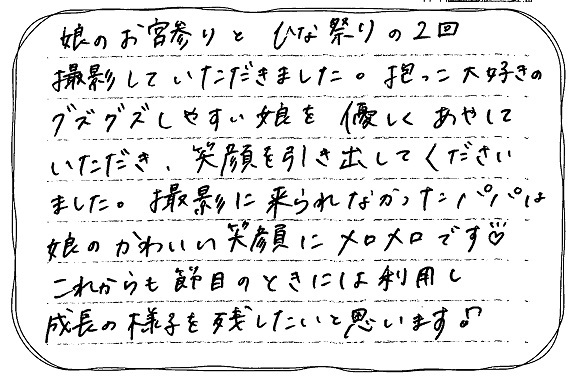 娘のお宮参りとひな祭りの2回
撮影していただきました。抱っこ大好きの
グズグズしやすい娘を優しくあやして
いただき、笑顔を引き出してください
ました。撮影に来られなかったパパは
娘のかわいい笑顔にメロメロです♡
これからも節目のときには利用し
成長の様子を残したいと思います♪